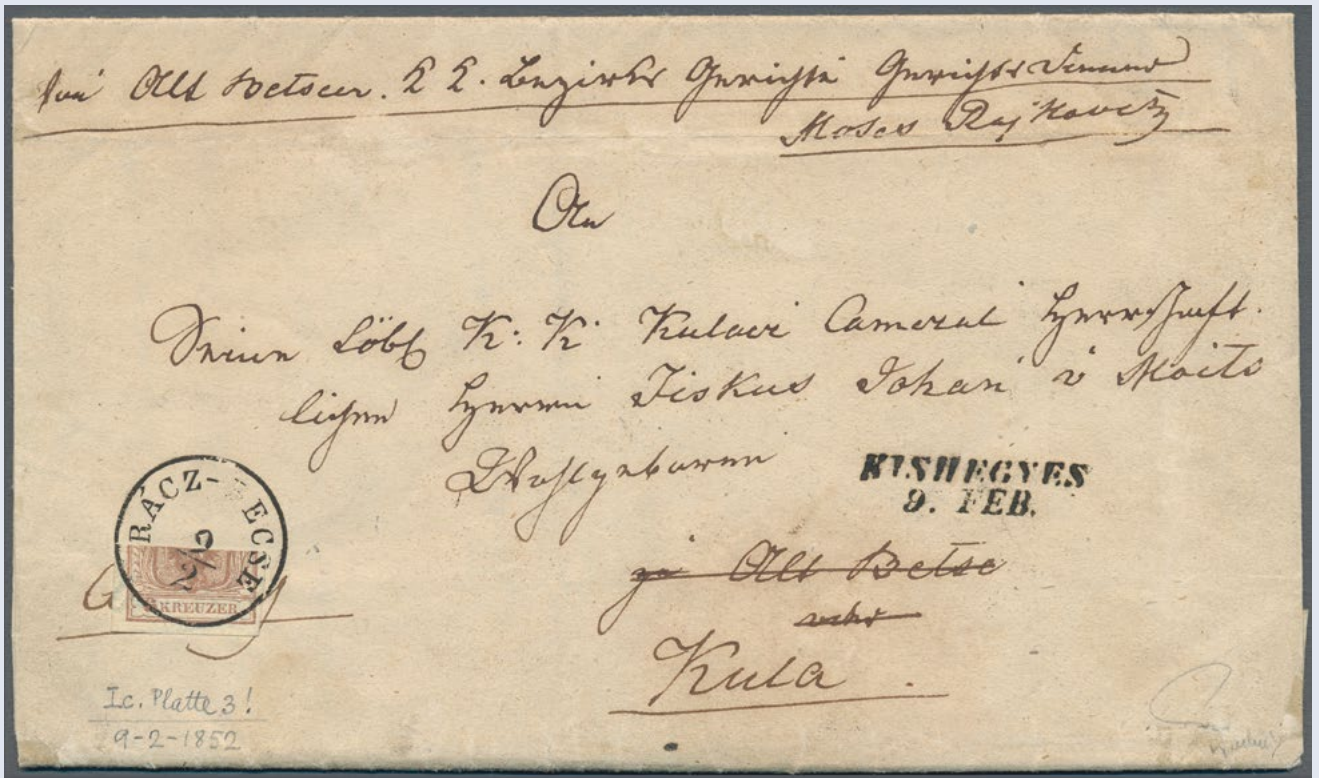 Alt Betseer. K K. Bezirks Gerichts Gerichts Diener
Moses Rajkovits
An
Seine Löbl K: K: Kulaer Cameral Herrschaft.
lichen Herrn Fiskus Johan v Moits
Wohlgeboren
KISHEGYES
9. FEB.
RÁCZ- ECSE
9/2
KREUZER
zu Alt Betse
Kula
I.c. Platte 3!
9-2-1852